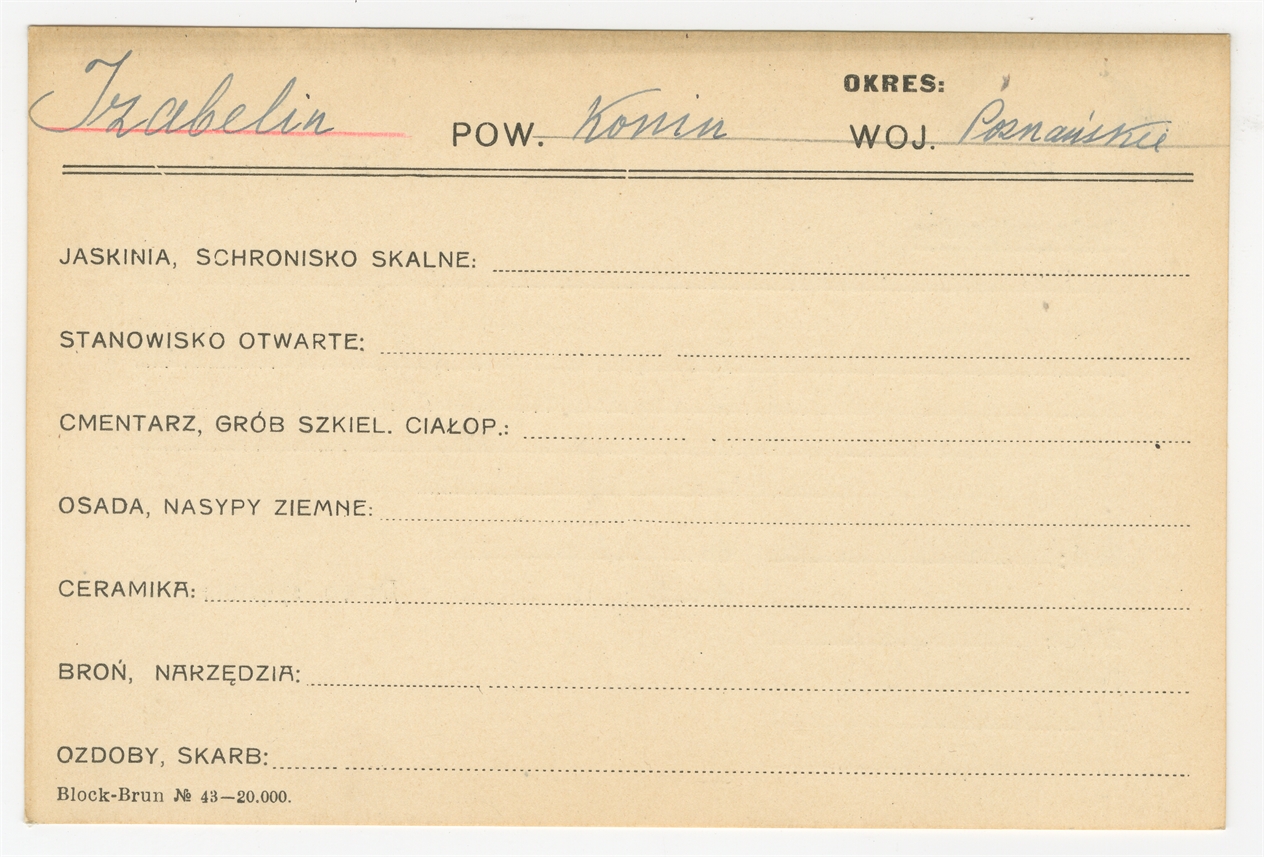 OKRES:
Izabelin POW. Konin WOJ. Poznańskie
JASKINIA, SCHRONISKO SKALNE:
STANOWISKO OTWARTE:
CMENTARZ, GRÓB SZKIEL. CIAŁOP.:
OSADA, NASYPY ZIEMNE:
CERAMIKA:
BROŃ, NARZĘDZIA:
OZDOBY, SKARB:
Block-Brun № 43—20.000.